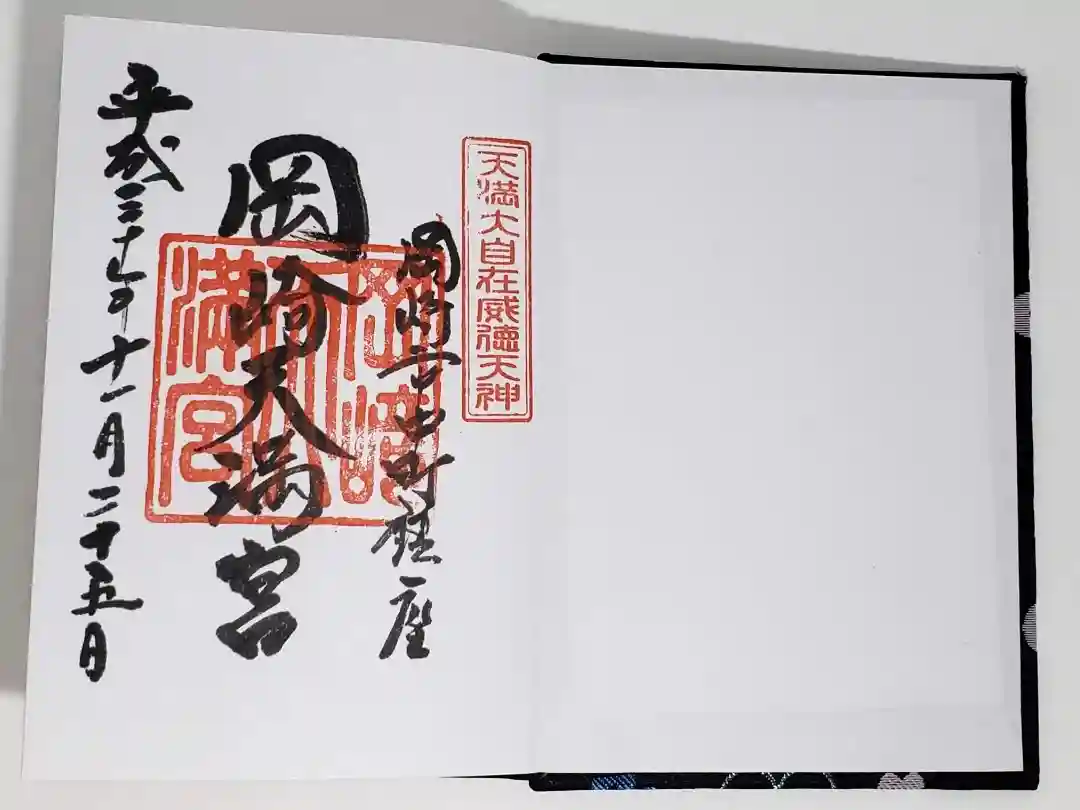 天満大自在威徳天神
岡崎市中町鎮座
岡崎天満宮
岡崎天満宮
平成三十年十一月二十五日